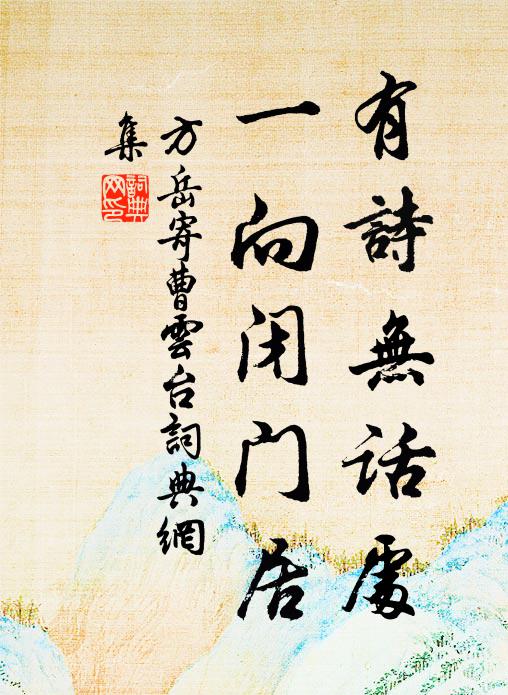 有詩無話處
一向闭门居
方岳寄曹雲台詞典網
集
詞典
网印